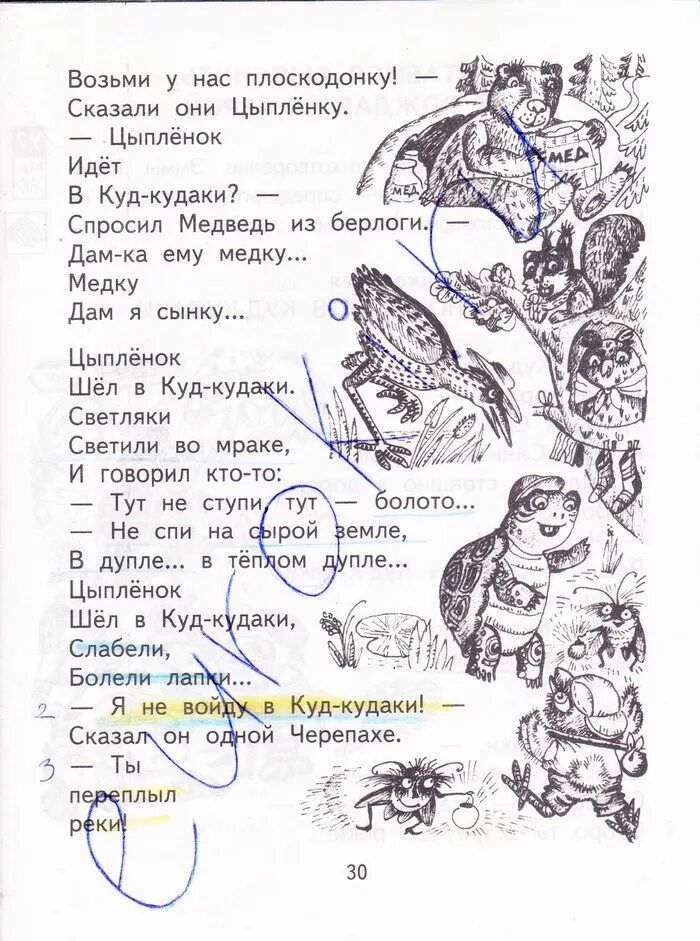 Возьми у нас плоскодонку! —
Сказали они Цыплёнку.
— Цыплёнок
Идёт
В Куд-кудаки?
Спросил Медведь из берлоги. —
Дам-ка ему медку...
Медку
Дам я сынку...
МЕД
МЕД
Цыплёнок
Шёл в Куд-кудаки.
Светляки
Светили во мраке,
И говорил кто-то:
— Тут не ступи, тут — болото...
— Не спи на сырой земле,
В дупле... в тёплом дупле...
Цыплёнок
Шёл в Куд-кудаки,
Слабели,
Болели лапки...
2 — Я не войду в Куд-кудаки! —
Сказал он одной Черепахе.
3 — Ты
переплыл
реки!
30